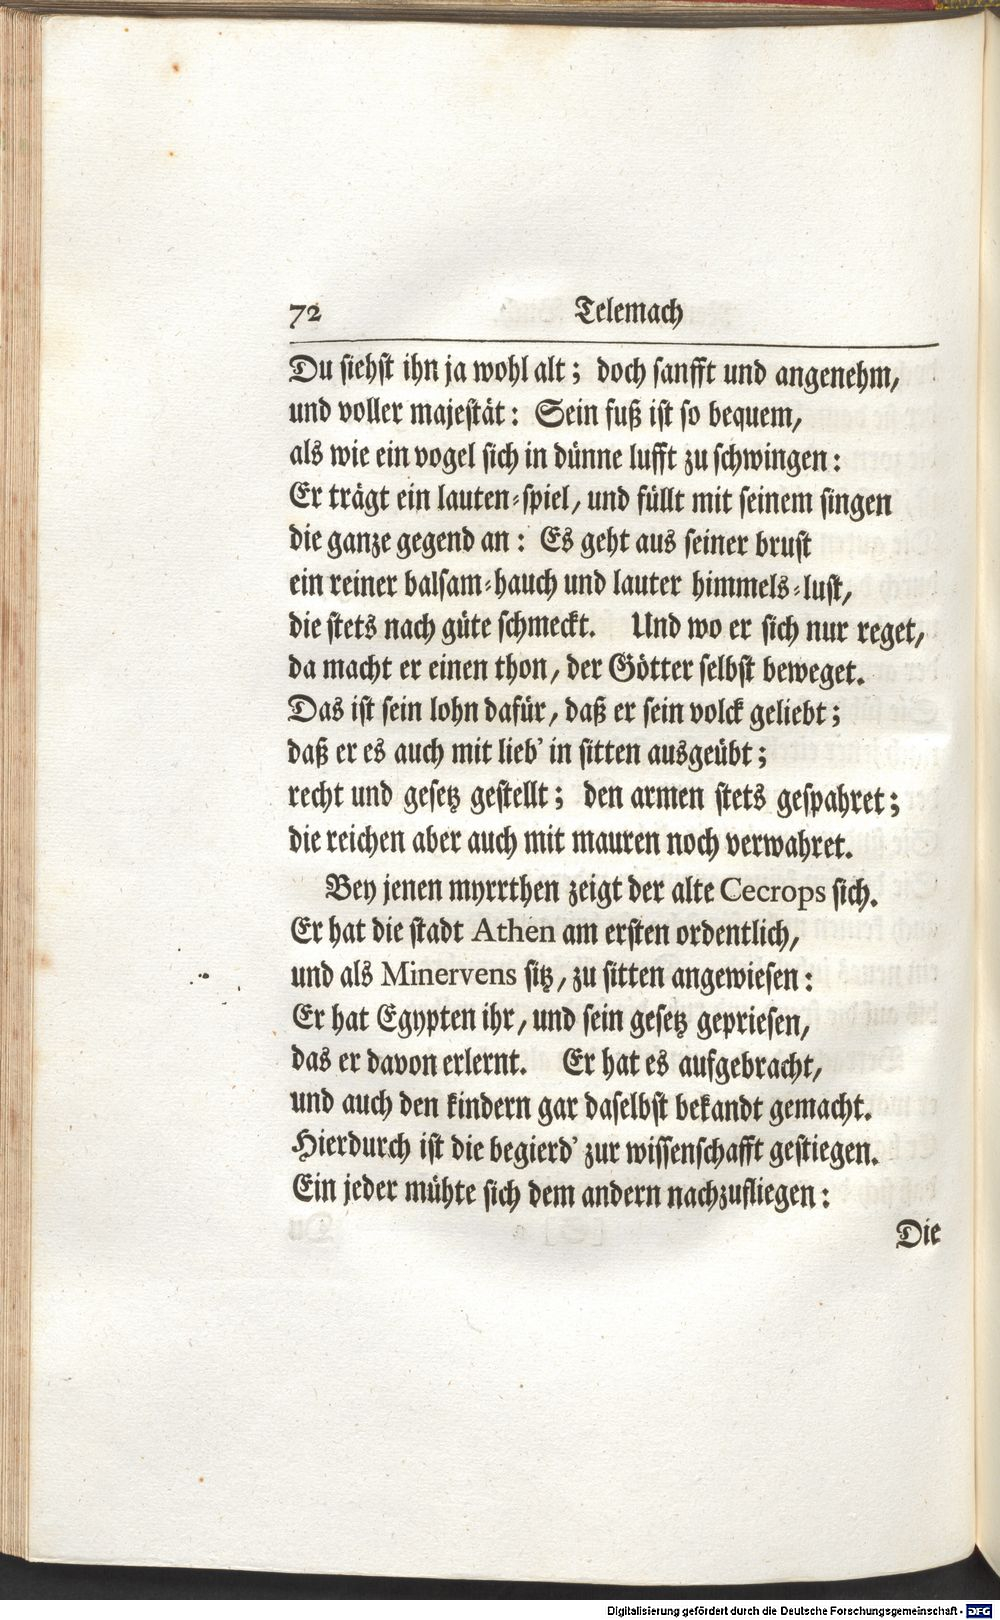 72 Telemach
Du siehst ihn ja wohl alt; doch sanfft und angenehm,
und voller majestät: Sein fuß ist so bequem,
als wie ein vogel sich in dünne lufft zu schwingen:
Er trägt ein lauten-spiel, und füllt mit seinem singen
die ganze gegend an: Es geht aus seiner brust
ein reiner balsam-hauch und lauter himmels-lust,
die stets nach güte schmeckt. Und wo er sich nur reget,
da macht er einen thon, der Götter selbst beweget.
Das ist sein lohn dafür, daß er sein volck geliebt;
daß er es auch mit lieb' in sitten ausgeübt;
recht und gesetz gestellt; den armen stets gespahret;
die reichen aber auch mit mauren noch verwahret.
Bey jenen myrrthen zeigt der alte Cecrops sich.
Er hat die stadt Athen am ersten ordentlich,
und als Minervens sitz, zu sitten angewiesen:
Er hat Egypten ihr, und sein gesetz gepriesen,
das er davon erlernt. Er hat es aufgebracht,
und auch den kindern gar daselbst bekandt gemacht.
Hierdurch ist die begierd' zur wissenschafft gestiegen.
Ein jeder mühte sich dem andern nachzufliegen:
Die
Digitalisierung gefördert durch die Deutsche Forschungsgemeinschaft - DFG